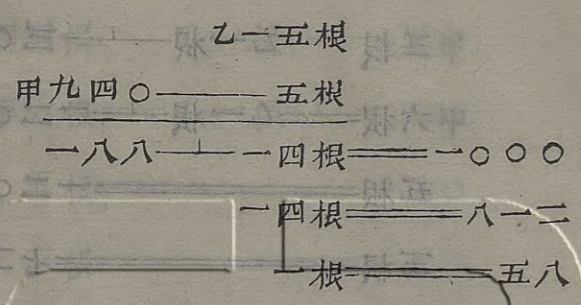 乙一五根
甲九四〇——五根
一八八—⊥一四根══一〇〇〇
一四根══八一二
一根══五八